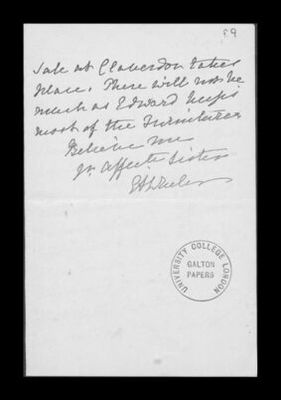 59
sale at Claverdon takes
place. There will not be
much as Edward keeps
most of the Furniture
Believe me
yr affecte Sister
E A Wheler
UNIVERSITY COLLEGE LONDON
GALTON
PAPERS